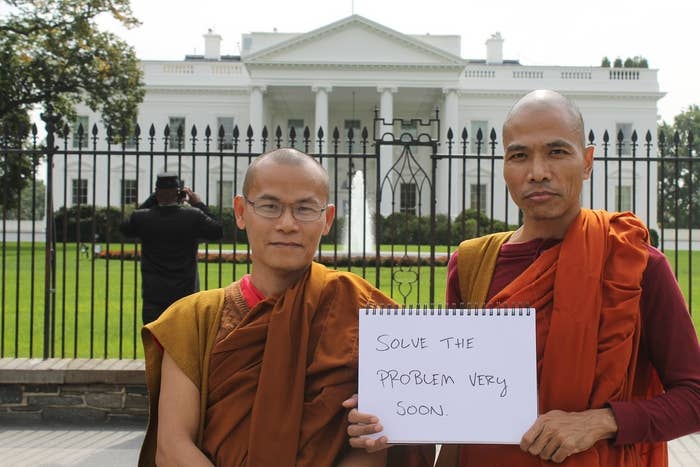 SOLVE THE
PROBLEM VERY
SOON.